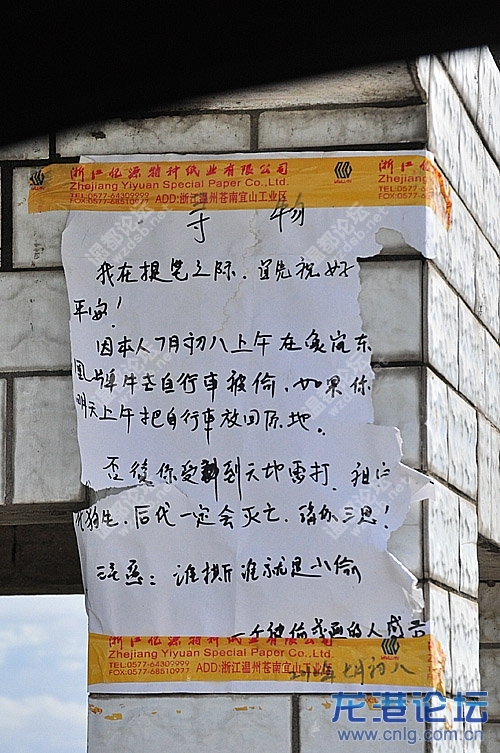 浙江亿源特种纸业有限公司 浙江亿
Zhejiang Yiyuan Special Paper Co.,Ltd. Zhejiang
TEL:0577-64309999
FAX:0577-68510977 ADD:浙江温州苍南宜山工业区
寻 物
我在提笔之际.首先祝好
平安!
因本人7月初八上午在 东
自行车被偷.如果你
明天上午把自行车放回原地。
否後你受到天地雷打.祖
狗生.后代一定会灭亡.请你三思!
注意:谁撕谁就是小偷
一个被偷 的人
浙江亿源特种纸业有限公司
Zhejiang Yiyuan Special Paper Co.,Ltd.
TEL:0577-64309999
FAX:0577-68510977 ADD:浙江温州苍南宜山工业区
七月初八
龙港论坛
www.cnlg.com.cn